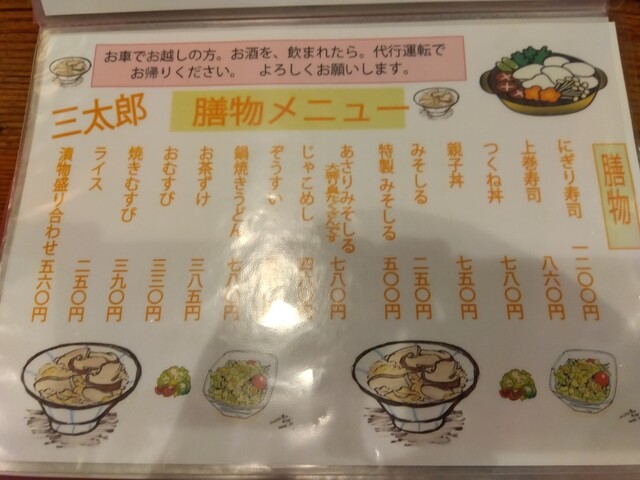 お車でお越しの方。お酒を、飲まれたら。代行運転で
お帰りください。　よろしくお願いします。
三太郎
膳物メニュー
膳物
にぎり寿司 一二〇〇円
上巻寿司 八六〇円
つくね丼 七八〇円
親子丼 七五〇円
みそしる 二五〇円
特製 みそしる 五〇〇円
あさりみそしる 七八〇円
じゃこめし
ぞうすい
鍋焼きうどん
お茶ずけ 三八五円
おむすび 三三〇円
焼きむすび 三九〇円
ライス 二五〇円
漬物盛り合わせ 五六〇円